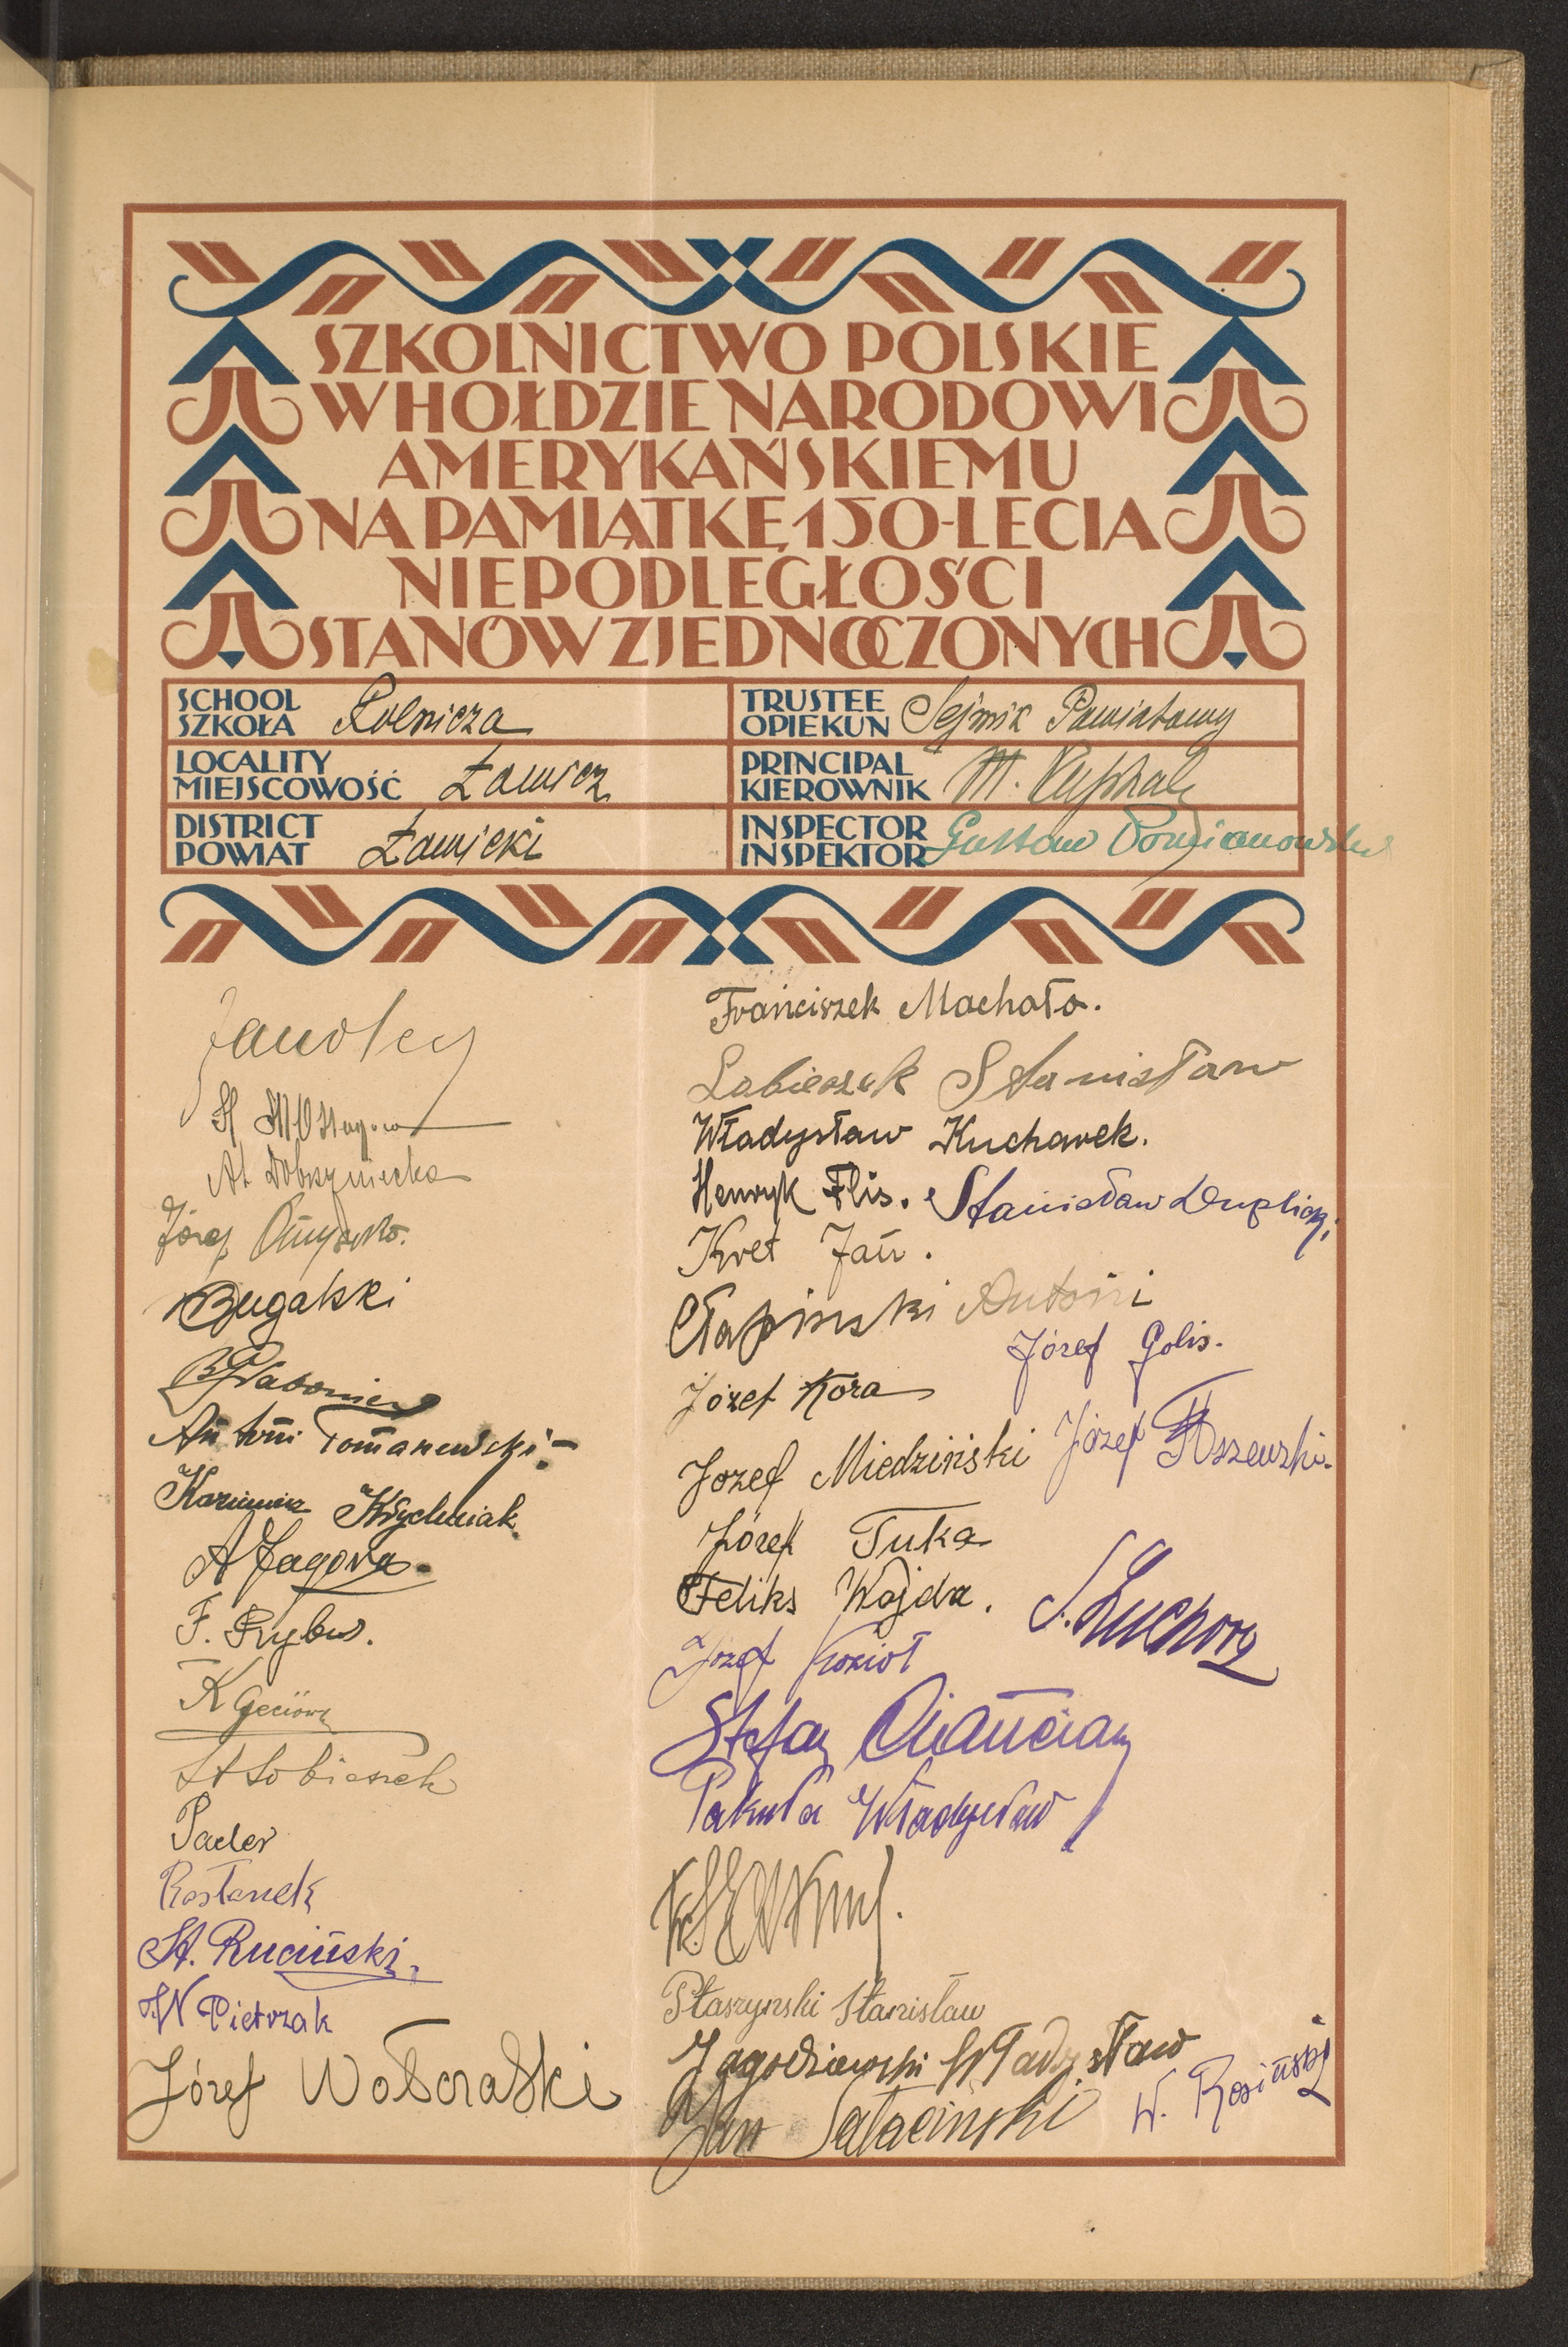 SZKOLNICTWO POLSKIE
W HOŁDZIE NARODOWI
AMERYKAŃSKIEMU
NA PAMIĄTKĘ 150-LECIA
NIEPODLEGŁOŚCI
STANÓW ZJEDNOCZONYCH
SCHOOL
SZKOŁA Rolnicza
TRUSTEE
OPIEKUN Sejmik Powiatowy
LOCALITY
MIEJSCOWOŚĆ Łowicz
PRINCIPAL
KIEROWNIK M.
DISTRICT
POWIAT Łowicki
INSPECTOR
INSPEKTOR Gustaw
St
Józef
Bugalski
Antoni Tomanewski
Kazimierz Krychniak
A Jagora
F. Rybus.
K Geciów
St Sobieszek
Pacler
Rostanek
St. Ruciński.
W Pietrzak
Józef Wolbralski
Franciszek Machoła.
Labieszek Stanisław
Władysław Kucharek.
Henryk Flis. Stanisław Duplicki
Kret Jan.
Człapiński Antoni
Józef Golis.
Józef Kora
Józef Miedziński Józef
Józef Tuka
Feliks Wojda. S. Suchorz
Józef Kozioł
Stefan
Pakuła Władysław
Ptaszynski Stanisław
Jagodziewski Władysław
Jan Sałaciński W. Rosiński